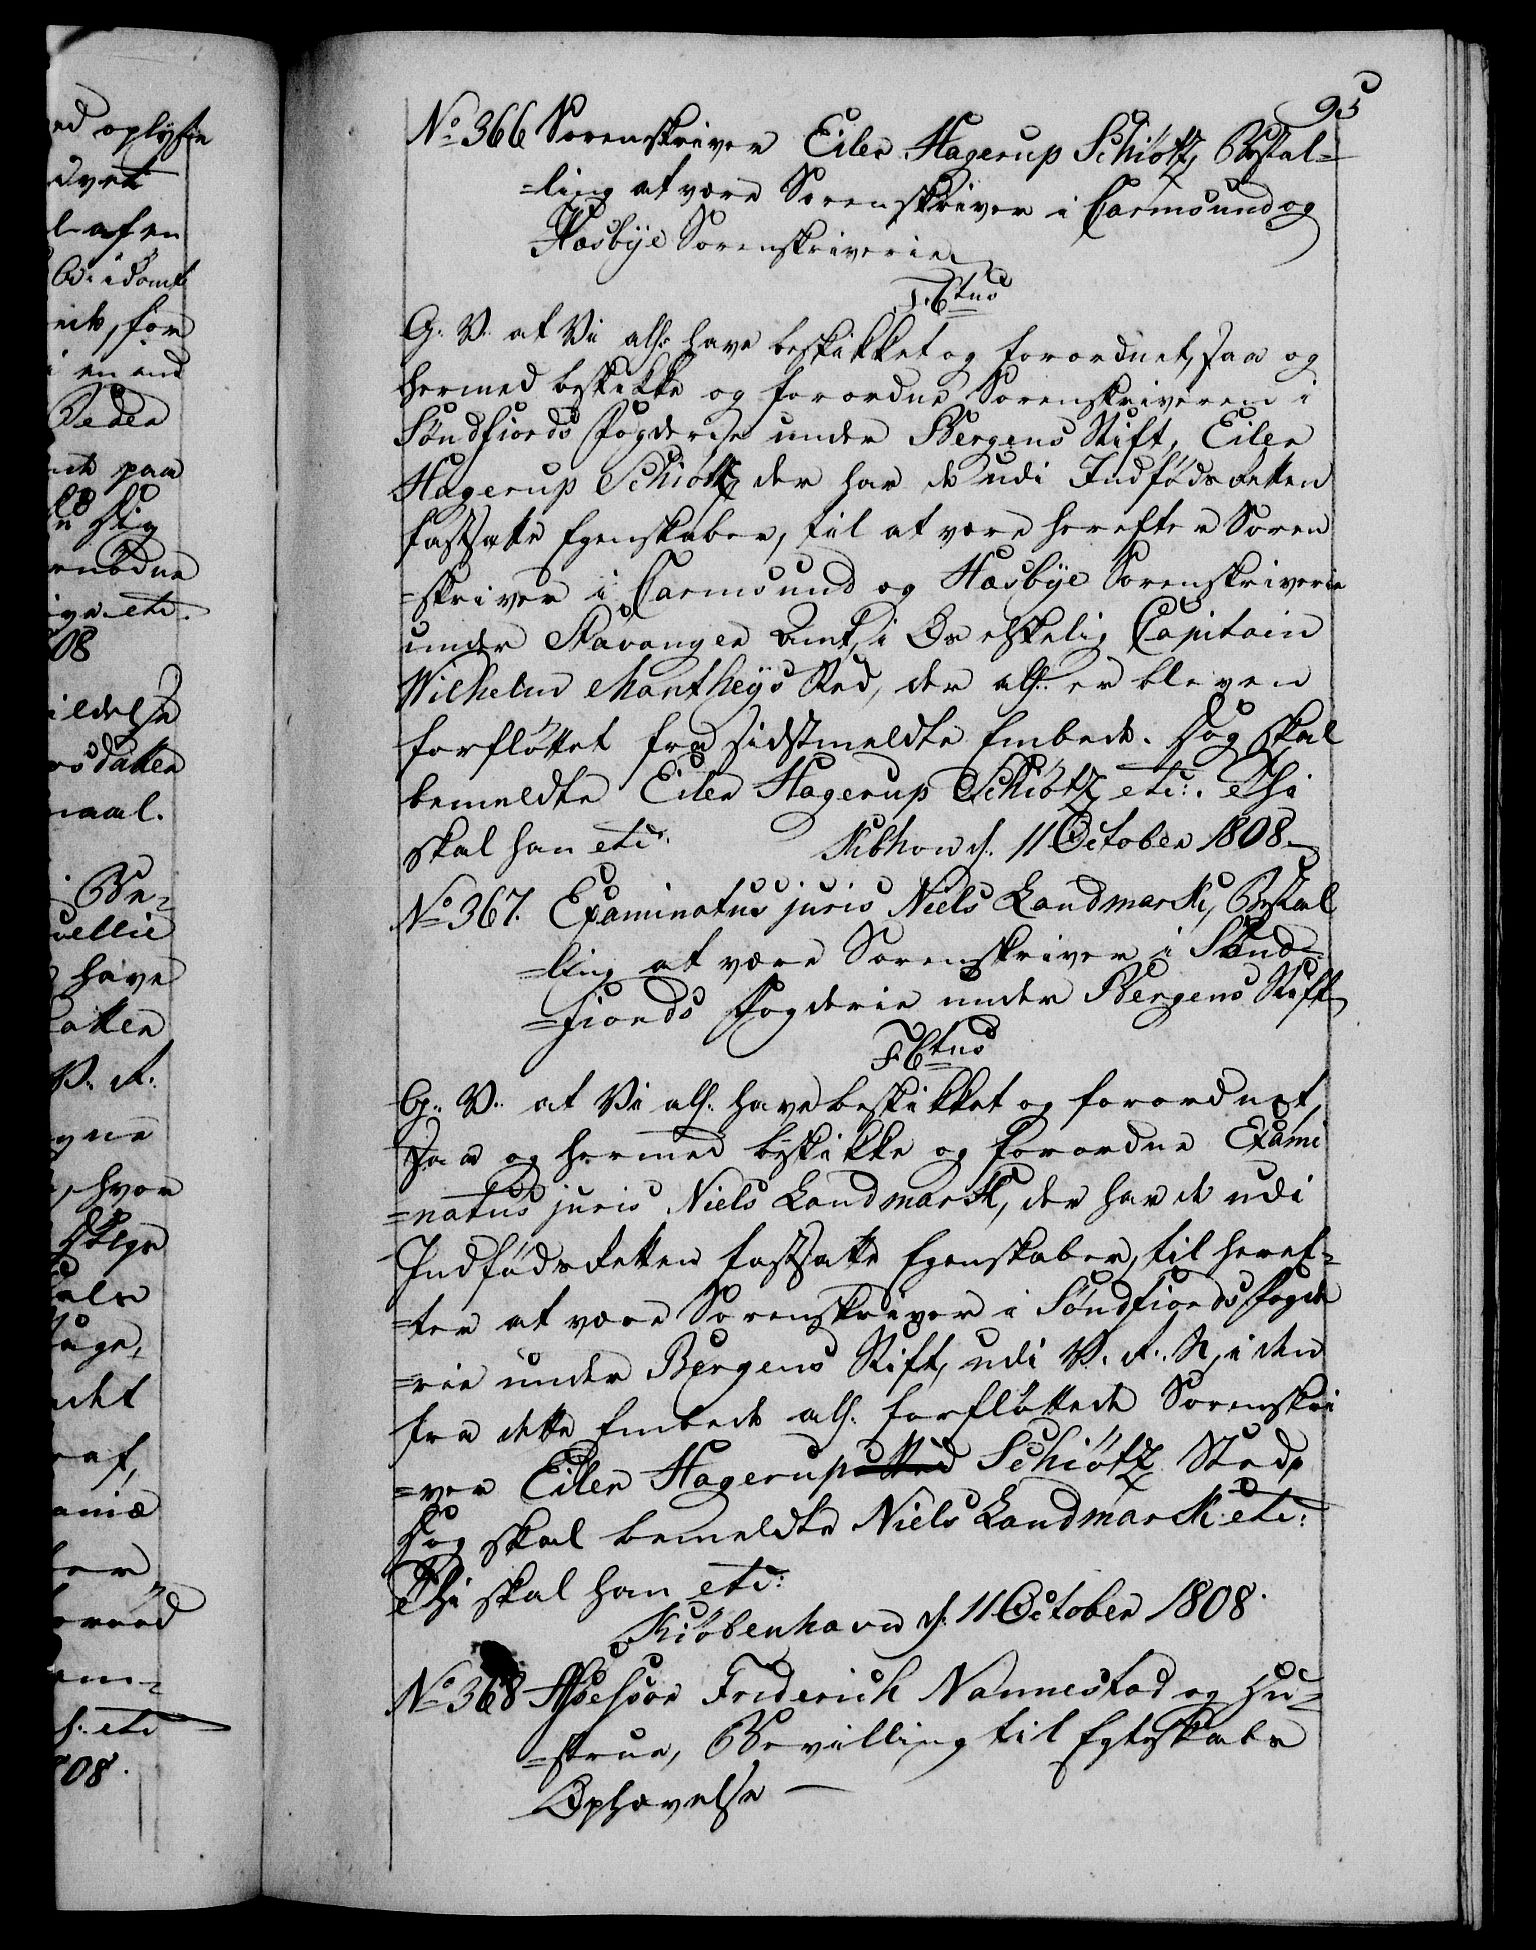 95
No 366 Sorenskriver Eiler Hagerup Schiøtz, Bestal-
=ling at være Sorenskriver i Carmsund og
Hæsbÿe Sorenskriverie
F. 6tus
G. V. at Vi alf: have beskikket og forordnet, saa og
hermed beskikke og forordne Sorenskriveren i
Søndfiords Fogderie under Bergens Stift, Eiler
Hagerup Schiøtz der har de udi Indfødsretten
fastsatte Egenskaber, til at være herefter Soren
=skriver i Carmsund og Hæsbÿe Sorenskriverie
under Stavanger Amt, i Os elskelig Capitain
Wilhelm Mantheÿs Sted, der alf: er bleven
forfløttet fra sidstmeldte Embede. Dog skal
bemeldte Eiler Hagerup Schiøtz etc: Thi
skal han etc: Kbhavn d. 11 October 1808
No 367. Examinatus juris Niels Landmark, Bestal
=ling at være Sorenskriver i Sønd-
=fiords Fogderie under Bergens Stift
F. 6tus
G. V. at Vi alf. have beskikket og forordnet,
saa og hermed beskikke og forordne Exami
=natus juris Niels Landmark, der har de udi
Indfødsretten fastsatte Egenskaber, til heref-
=ter at være Sorenskriver i Søndfiords Fogde
=rie under Bergens Stift, udi V. R. N, i den
fra dette Embede alf. forfløttede Sorenskri
=ver Eiler Hagerup Schiøtz Sted,
Dog skal bemeldte Niels Landmark etc:
Thi skal han etc:
Kiøbenhavn d. 11 October 1808.
No 368 Assessor Friderich Nannestad og Hu-
=strue, Bevilling til Egteskabs
Ophævelse —